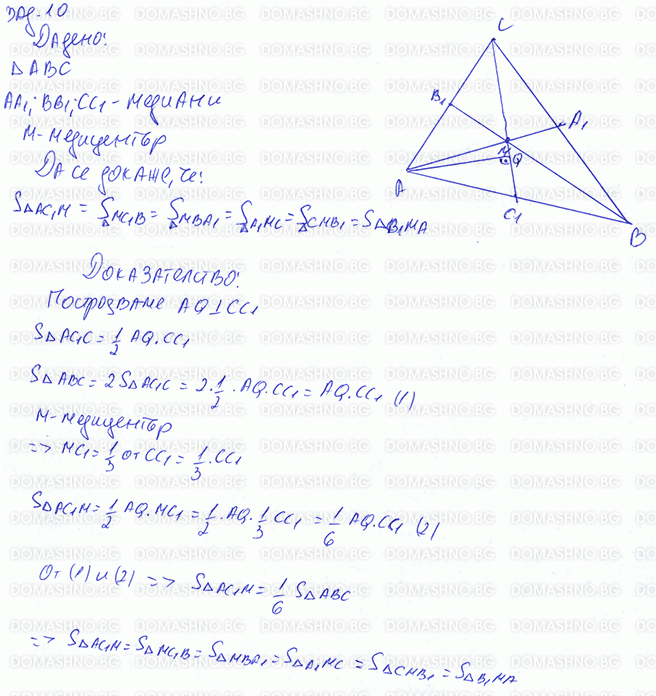 Зад. 10
Дадено:
△ABC
AA₁; BB₁; CC₁ - медиани
M - медицентър
Да се докаже, че:
S△AC₁M = S△MC₁B = S△MBA₁ = S△A₁MC = S△CMB₁ = S△B₁MA
C
B₁
A₁
M
Q
A
C₁
B
Доказателство:
Построяваме AQ⊥CC₁
S△AC₁C = 1/2 AQ.CC₁
S△ABC = 2S△AC₁C = 2.1/2.AQ.CC₁ = AQ.CC₁ (1)
M - медицентър
=> MC₁ = 1/3 от CC₁ = 1/3.CC₁
S△AC₁M = 1/2 AQ.MC₁ = 1/2.AQ.1/3 CC₁ = 1/6 AQ.CC₁ (2)
От (1) и (2) => S△AC₁M = 1/6 S△ABC
=> S△AC₁M = S△MC₁B = S△MBA₁ = S△A₁MC = S△CMB₁ = S△B₁MA
DOMASHNO.BG